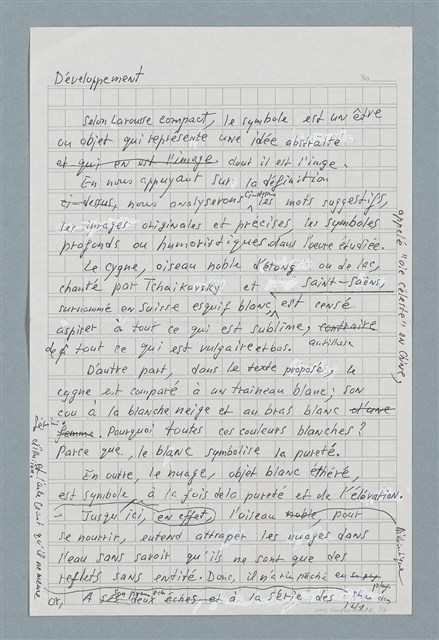 Développement
Selon Larousse compact, le symbole est un être
ou objet qui représente une idée abstraite
et qui en est l'image. dont il est l'imge.
En nous appuyant sur la définition
ci-dessus, nous analyserons les mots suggestifs,
les images originales et précises, les symboles
profonds ou humoristiques dans l'œuvre étudiée.
Le cygne, oiseau noble d'étang ou de lac,
chanté par Tchaikovsky et Saint-Saëns,
surnommé en Suisse esquif blanc, est censé
appelé "oie céleste" en Chine,
aspirer à tout ce qui est sublime, contraire
de tout ce qui est vulgaire et bas.
D'autre part, dans le texte proposé, le
cygne est comparé à un traineau blanc; son
cou à la blanche neige et au bras blanc d'une
femme. Pourquoi toutes ces couleurs blanches?
Parce que, le blanc symbolise la pureté.
En outre, le nuage, objet blanc éthéré,
est symbole, à la fois de la pureté et de l'élévation.
- Jusqu'ici, en effet, l'oiseau noble, pour
se nourrir, entend attraper les nuages dans
l'eau sans savoir qu'ils ne sont que des
reflets sans entité. Donc, il n'a rien pêché
Or, A ses deux échecs et à la série des